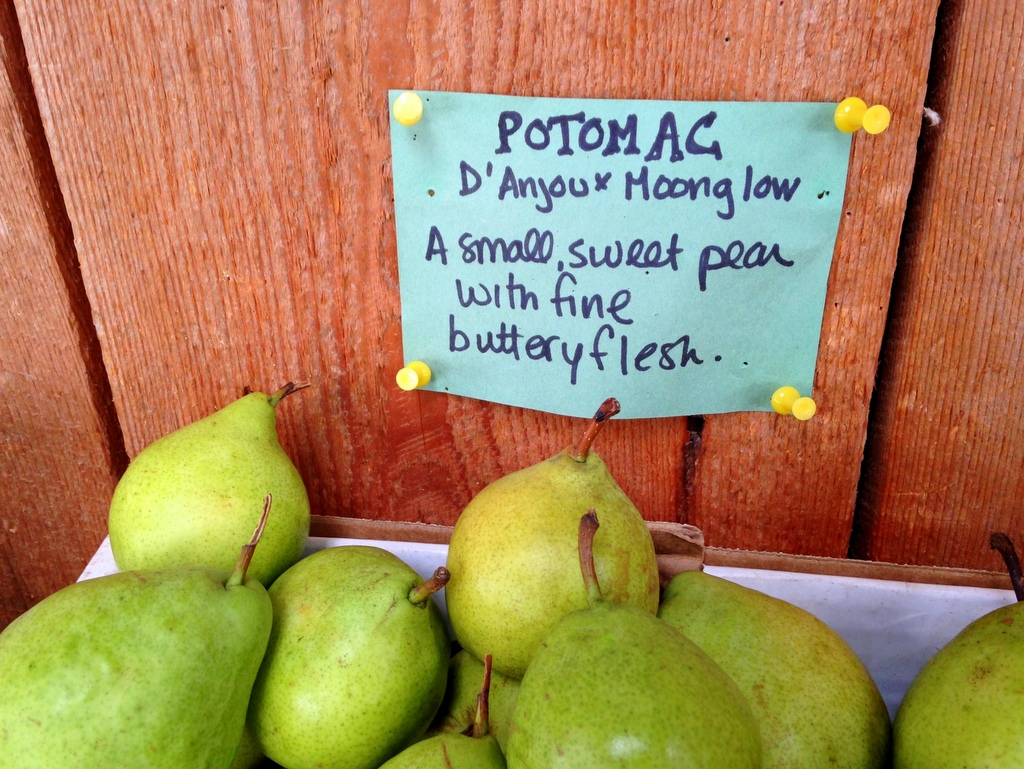 POTOMAC
D'Anjou x Moonglow
A small, sweet pear
with fine
buttery flesh.